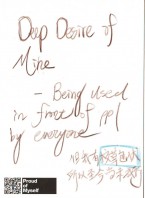 Deep Desire of
Mine
- Being used
in front of ppl
by everyone
但我有
所以
Proud
of
Myself